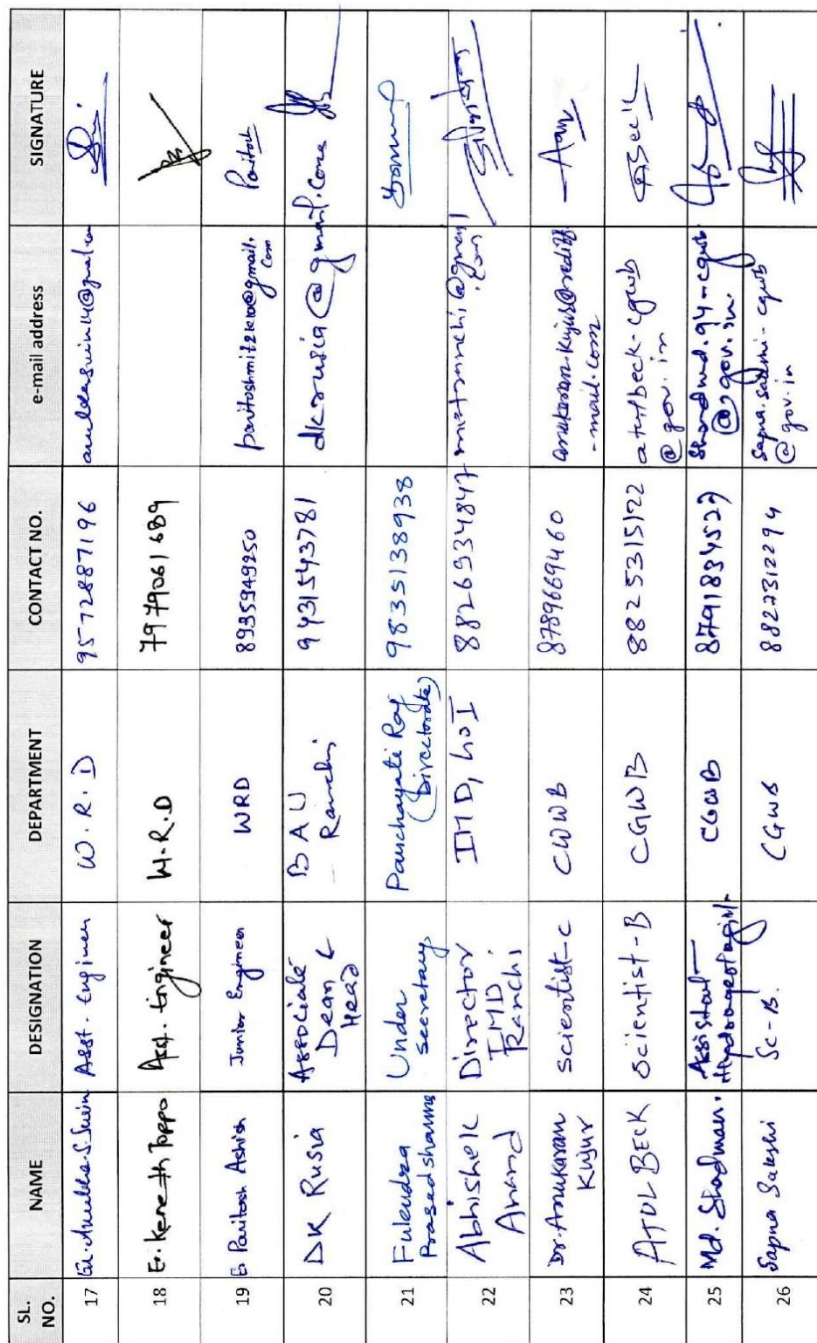 SL. NO. NAME DESIGNATION DEPARTMENT CONTACT NO. e-mail address SIGNATURE
17 Er. S. Asst. Engineer W.R.D 9572887196
18 Er. Kenneth Toppo Asst. Engineer W.R.D 7979061689
19 Er Paritosh Ashish Junior Engineer WRD 8935949250 @gmail.com Paritosh
20 DK Rusia Associate Dean & Head BAU Ranchi 9431543781 dkrusia@gmail.com
21 Fulendra Prasad Sharma Under secretary Panchayati Raj (Directorate) 9835138938
22 Abhishek Anand Director IMD Ranchi IMD, GoI 8826934847
23 Dr. Anukaran Kujur scientist-c CWWB 8789669460 anukaran.kujur@rediff-mail.com
24 ATUL BECK Scientist-B CGWB 8825315122 atulbeck-cgwb@gov.in
25 Md. Shadman. Assistant Hydrogeologist CGWB 8791834529
26 Sapna Sakshi Sc-B. CGWB 8822312294 Sapna.sakshi-cgwb@gov.in